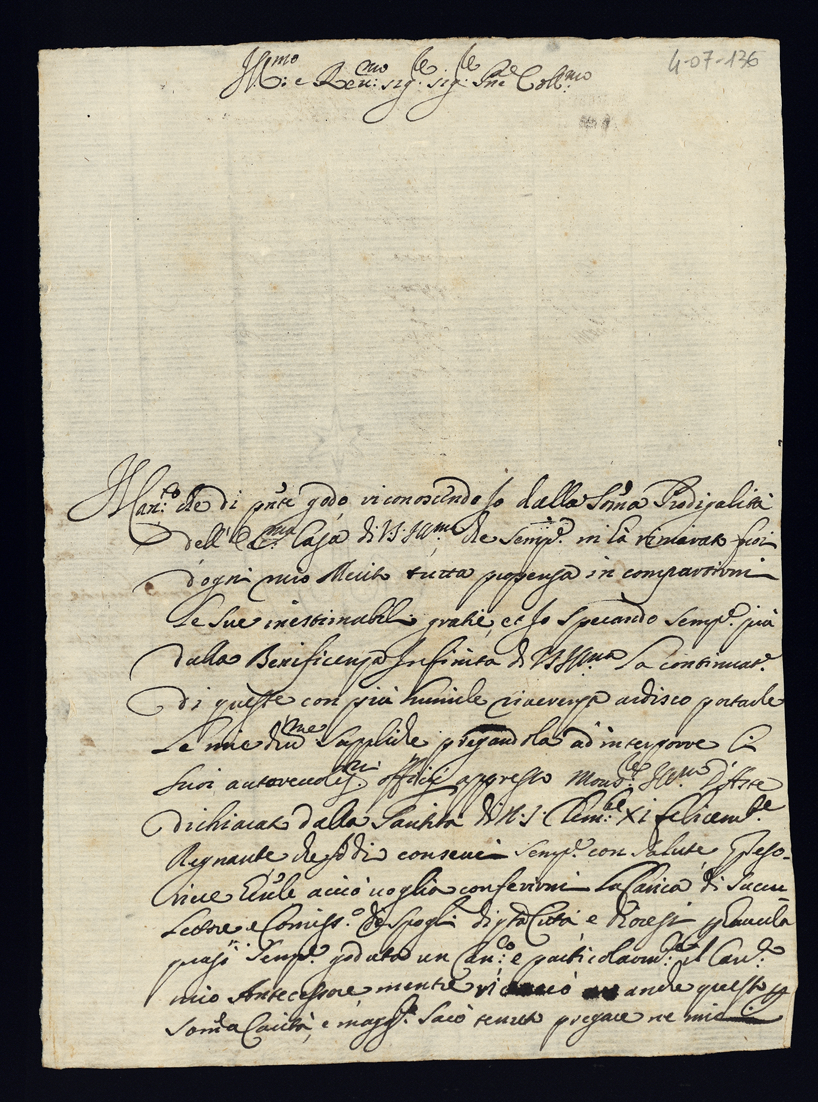 Ill.mo e Rev.mo sig.re sig.re Pne Coll.mo
4-07-136
che di pnte godo riconoscendolo dalla Somã Prodigalità
dell' Ecc.ma Casa di V.S. Ill.ma che semp.e mi hà rimirato fuori
d'ogni mio Merito tutta propensa in compartirmi
le sue inestimabili gratie, et Io sperando semp.e più
dalla Beneficenza Infinita di V.S. Ill.ma la continuat.e
di queste con più humile riverenza ardisco portarle
le mie hum.me suppliche pregandola ad interporre li
suoi autorevoliss.mi offitij appresso Mons.re Ill.mo d'Aste
dichiarato dalla Santità di N.S. Clem.te XI felicem.te
Regnante che Iddio conservi semp.e con salute Teso-
riere acciò voglia conferirmi la Carica di Succol-
lettore e Comiss.o de Spogli di qta Città, e Diocesi
semp.e goduta un Can.co e particolarm.te il Can.co
mio Antecessore mentre anche questo
Somã Carità, e magg.te sarò tenuto pregare ne miei